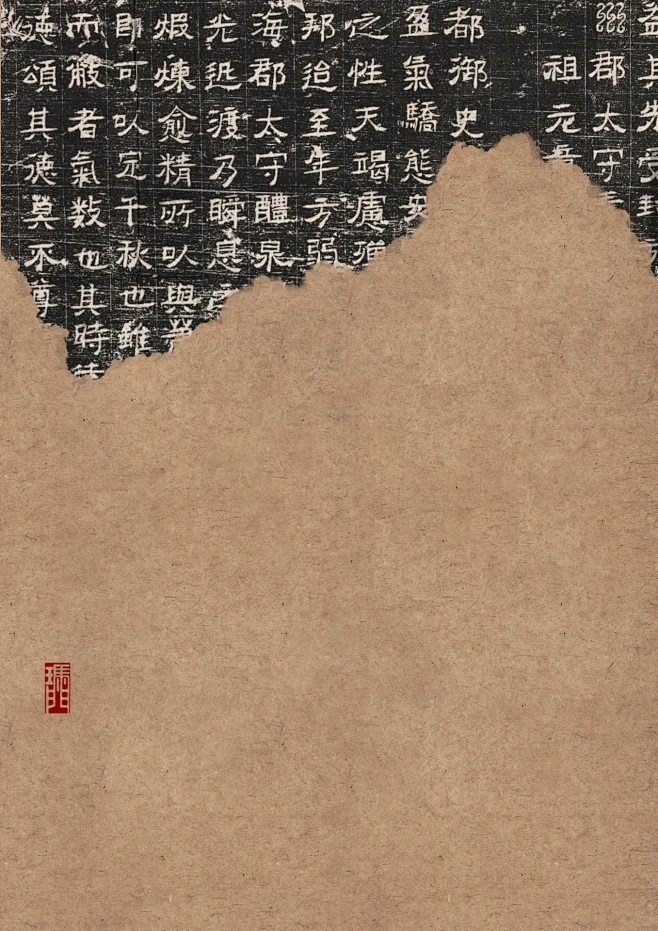 益其先受封
郡太守
祖元
都御史
盈氣驕態
之性天竭慮殫
邦迨至年方弱
海郡太守醴泉
光迅渡乃瞬息
煆煉愈精所以與
即可以定千秋也雖
而者氣数也其時
德頌其德莫不尊